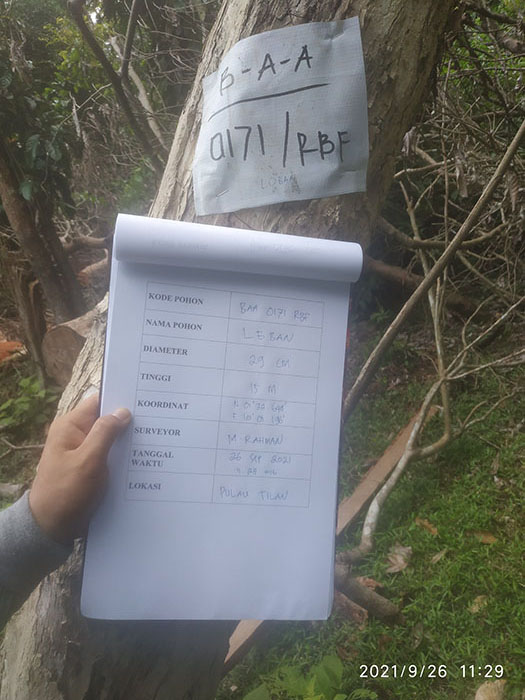 B-A-A
0171/RBF
LEBAN
KODE POHON BAA 0171 RBF
NAMA POHON LEBAN
DIAMETER 29 CM
TINGGI 15 M
KOORDINAT
SURVEYOR M RAHMAN
TANGGAL 26 SEP 2021
WAKTU
LOKASI PULAU TILAN
2021/9/26 11:29